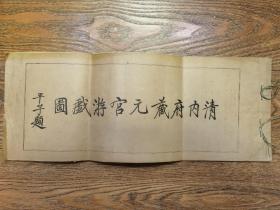 清內府藏元宮游戲圖
平子題